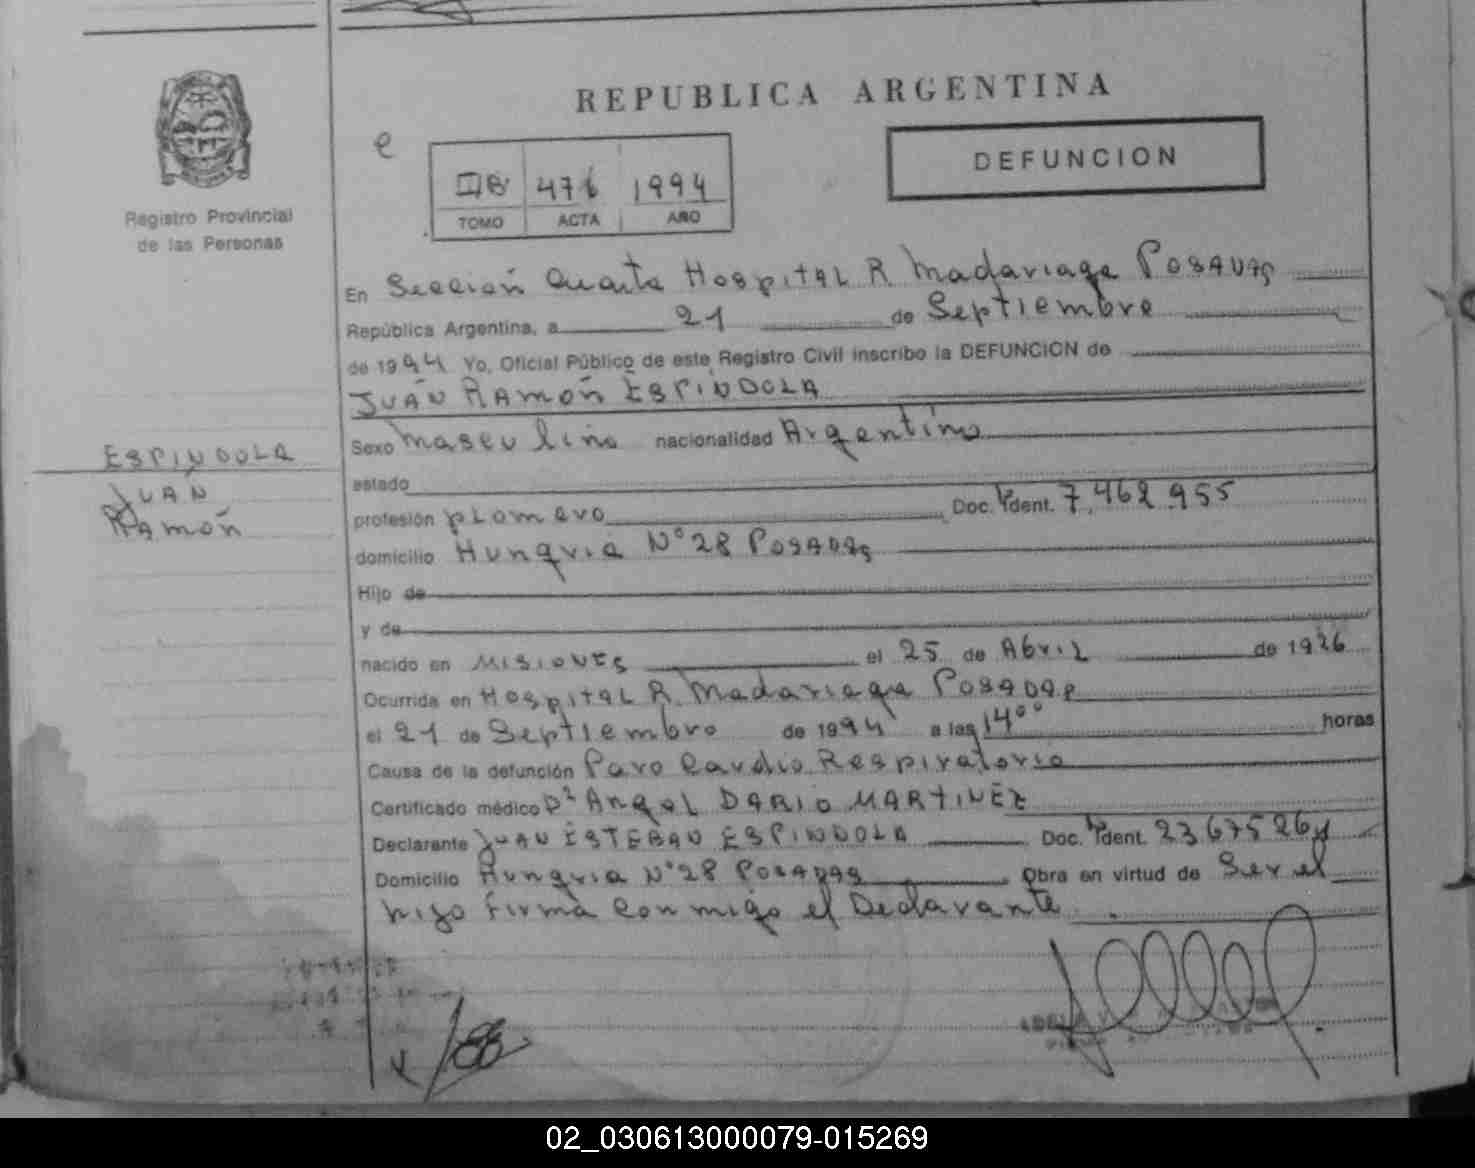 REPUBLICA ARGENTINA
DEFUNCION
e
II B 476 1994
TOMO ACTA AÑO
Registro Provincial
de las Personas
ESPINDOLA
JUAN
RAMÓN
En Sección Cuarta Hospital R Madariaga Posadas
República Argentina, a 21 de Septiembre
de 1994 Yo, Oficial Público de este Registro Civil inscribo la DEFUNCION de
JUAN RAMÓN ESPINDOLA
Sexo masculino nacionalidad Argentino
estado
profesión plomero Doc. Ident. 7.462.955
domicilio Hungria N° 28 Posadas
Hijo de
y de
nacido en Misiones el 25 de Abril de 1926
Ocurrida en Hospital R. Madariaga Posadas
el 21 de Septiembre de 1994 a las 14°° horas
Causa de la defunción Paro Cardio Respiratorio
Certificado médico Dr Angel DARIO MARTINEZ
Declarante JUAN ESTEBAN ESPINDOLA Doc. Ident. 23675264
Domicilio Hungria N° 28 Posadas Obra en virtud de Ser el
hijo firma conmigo el Declarante.
02_030613000079-015269